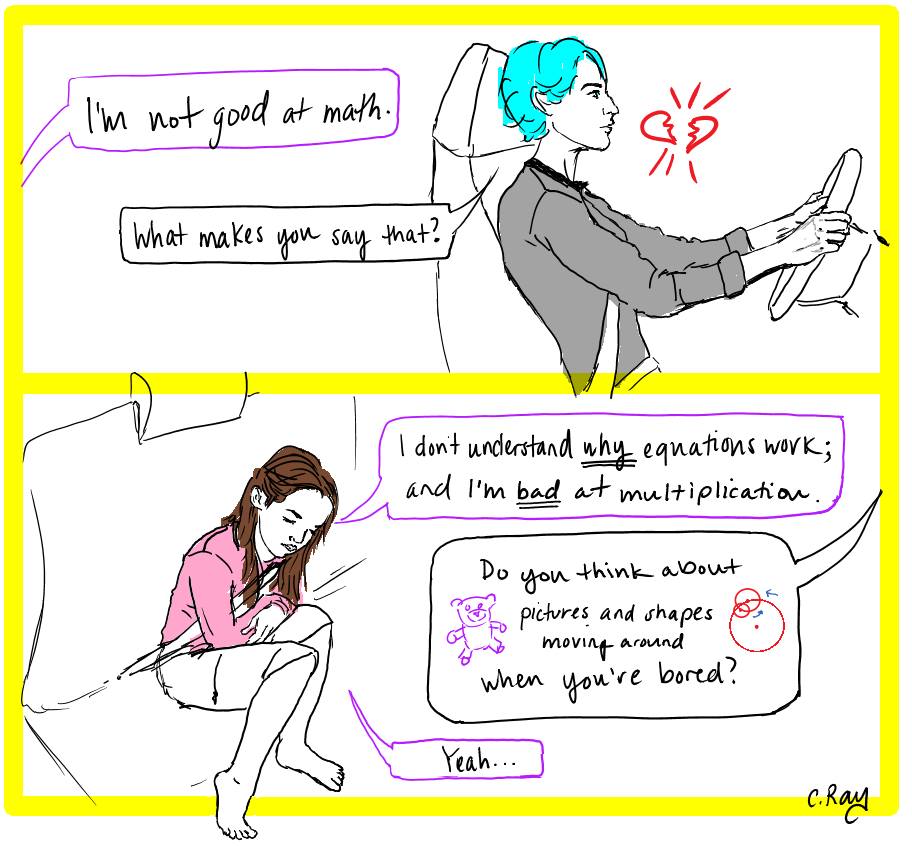 I'm not good at math.
What makes you say that?
I don't understand why equations work;
and I'm bad at multiplication.
Do you think about
pictures and shapes
moving around
when you're bored?
Yeah...
C. Ray